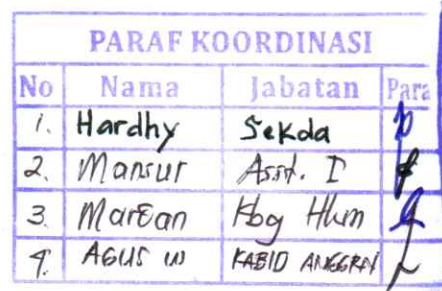 PARAF KOORDINASI
No Nama Jabatan Para
1. Hardhy Sekda
2. Mansur Asst. I
3. Marwan Kbg Hkm
4. AGUS W KABID ANGGRN